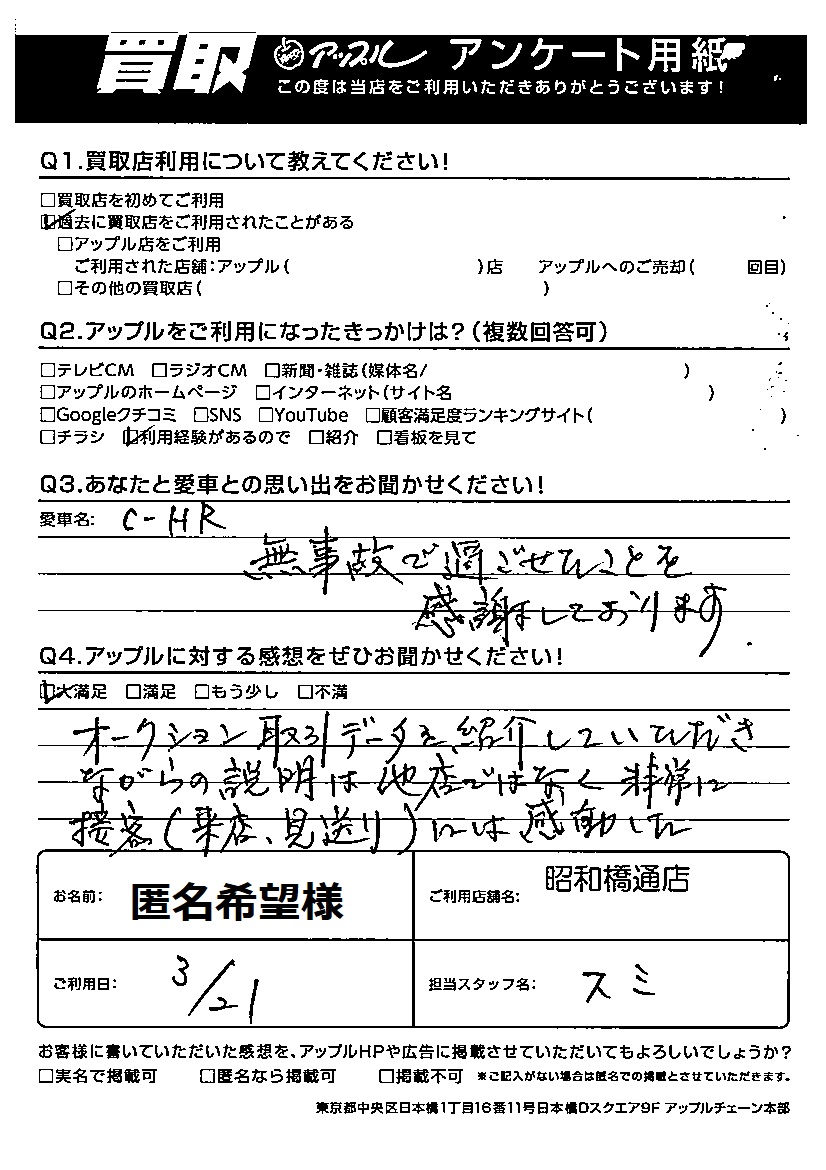 買取 アップル アンケート用紙
この度は当店をご利用いただきありがとうございます!
Q1.買取店利用について教えてください!
□買取店を初めてご利用
☑過去に買取店をご利用されたことがある
□アップル店をご利用
ご利用された店舗:アップル( )店 アップルへのご売却( 回目)
□その他の買取店( )
Q2.アップルをご利用になったきっかけは?(複数回答可)
□テレビCM □ラジオCM □新聞・雑誌(媒体名/ )
□アップルのホームページ □インターネット(サイト名 )
□Googleクチコミ □SNS □YouTube □顧客満足度ランキングサイト( )
□チラシ ☑利用経験があるので □紹介 □看板を見て
Q3.あなたと愛車との思い出をお聞かせください!
愛車名: C-HR
無事故で過ごせたことを
感謝しております.
Q4.アップルに対する感想をぜひお聞かせください!
☑大満足 □満足 □もう少し □不満
オークション取引データを紹介していただき
ながらの説明は他店ではなく非常に
接客(来店、見送り)には感動した
お名前: 匿名希望様 ご利用店舗名: 昭和橋通店
ご利用日: 3/21 担当スタッフ名: スミ
お客様に書いていただいた感想を、アップルHPや広告に掲載させていただいてもよろしいでしょうか?
□実名で掲載可 □匿名なら掲載可 □掲載不可 ※ご記入がない場合は匿名での掲載とさせていただきます。
東京都中央区日本橋1丁目16番11号日本橋Dスクエア9F アップルチェーン本部